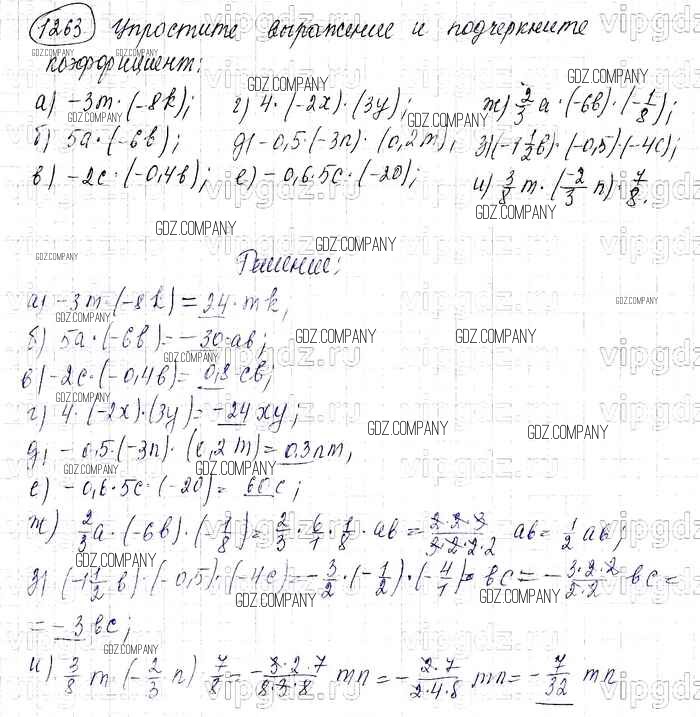 1263 Упростите выражение и подчеркните
коэффициент:
а) -3m·(-8k); г) 4·(-2x)·(3y); ж) 2/3 a·(-6в)·(-1/8);
б) 5а·(-6в); д) -0,5·(-3n)·(0,2m); з) (-1 1/2 в)·(-0,5)·(-4с);
в) -2с·(-0,4в); е) -0,6·5с·(-20); и) 3/8 m·(-2/3 n)·7/8.
Решение:
а) -3m·(-8k)=24·mk;
б) 5а·(-6в)=-30·ав;
в) -2с·(-0,4в)=0,8·св;
г) 4·(-2x)·(3y)=-24xy;
д) -0,5·(-3n)·(0,2m)=0,3nm,
е) -0,6·5с·(-20)=60с;
ж) 2/3 а·(-6в)·(-1/8)=2/3·6/1·1/8·ав=2·2·3/3·2·2·2 ав=1/2 ав;
з) (-1 1/2 в)·(-0,5)·(-4с)=-3/2·(-1/2)·(-4/1)·вс=-3·2·2/2·2 вс=
=-3вс;
и) 3/8 m·(-2/3 n) 7/8=-3·2·7/8·3·8 mn=-2·7/2·4·8 mn=-7/32 mn
GDZ.COMPANY
vipgdz.ru